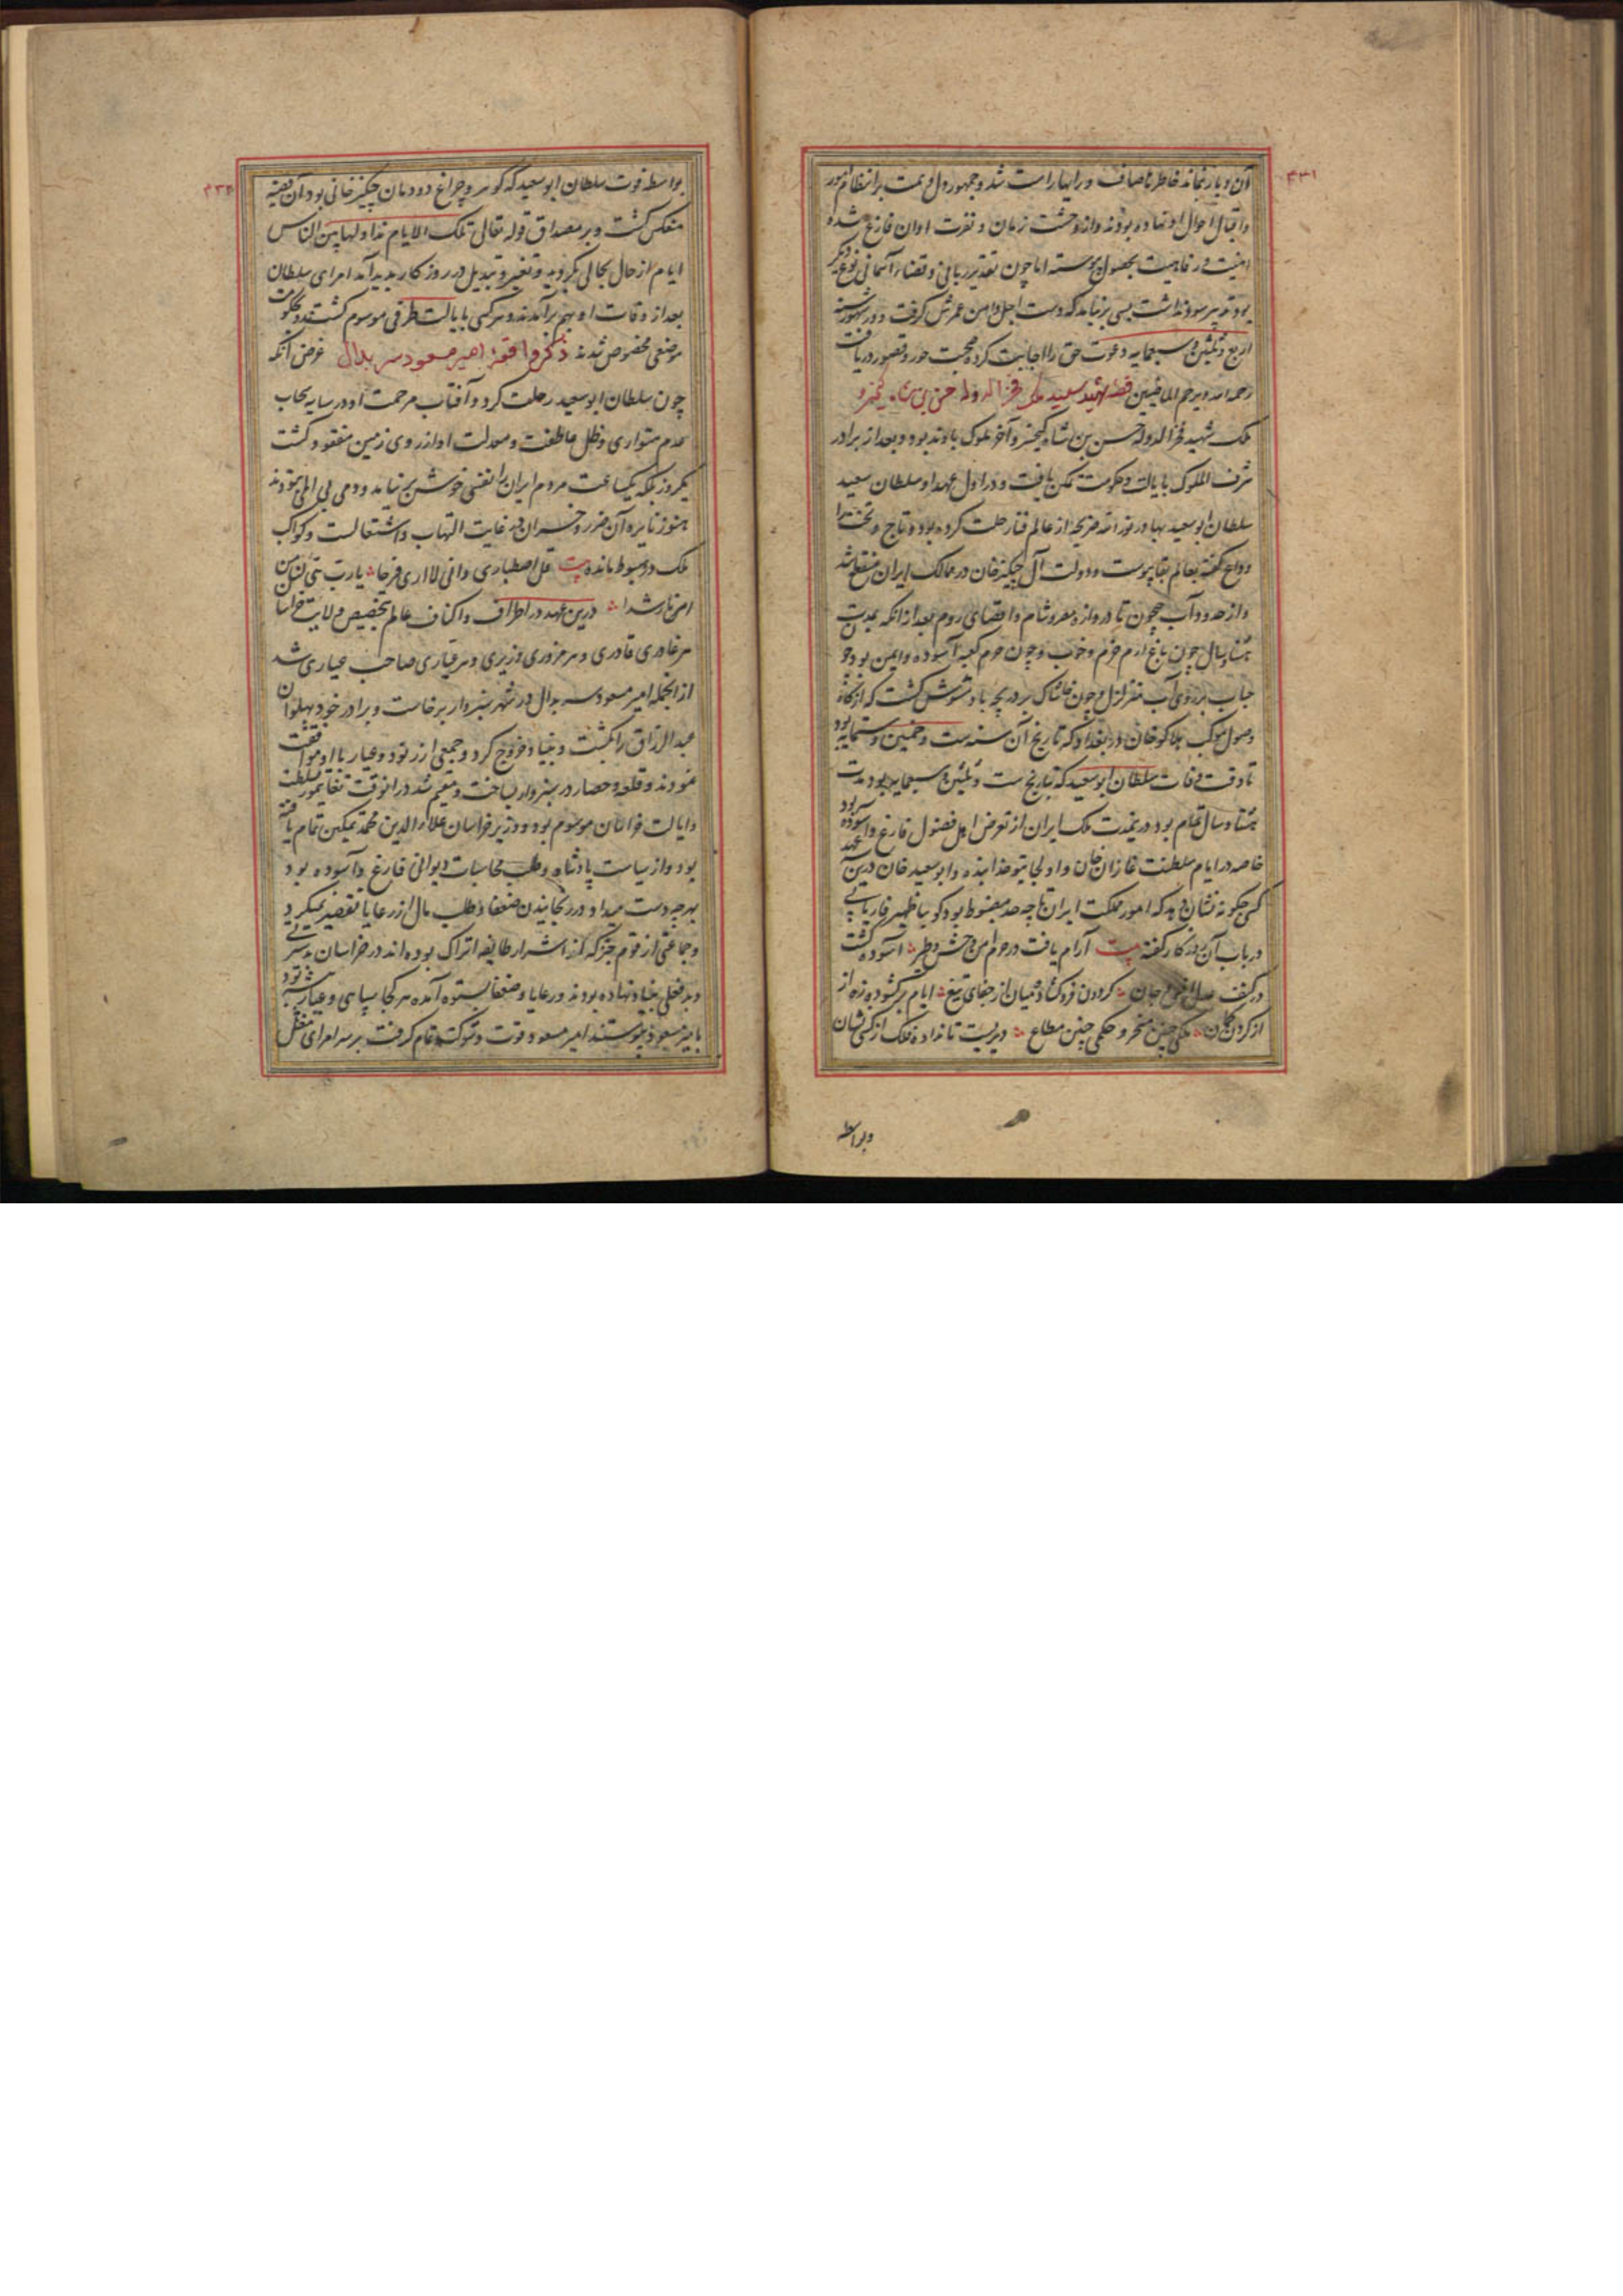 ۴۳۱
آن دیار بماند خاطرها صاف و رایها راست شد و جمهور دل و همت بر انتظام امور
و اقبال احوال او نهاده بودند و از وحشت زمان و نفرت اوان فارغ شده
امنیت و رفاهیت بحصول پیوسته اما چون تقدیر ربانی و قضاء آسمانی نوع دیگر
بود تدبیر سود نداشت بسی برنیامد که دست اجل دامن عمرش گرفت و در شهور سنه
اربع و ثلثین و سبعمایه دعوت حق را اجابت کرده صحبت حور و قصور دریافت
رحمه الله و یرحم الماضین قصه شهید سعید ملک فخر الدوله حسن بن شاه کیخسرو
ملک شهید فخر الدوله حسن بن شاه کیخسرو آخر ملوک باوند بود و بعد از برادر
شرف الملوک بایالت و حکومت تمکن یافت و در اول عهد او سلطان سعید
سلطان ابو سعید بهادر نور الله ضریحه از عالم فنا رحلت کرده بود و تاج و تخت را
وداع گفته بعالم بقا پیوست و دولت آل چنگیز خان در ممالک ایران منقطع شد
و از حدود آب جیحون تا دروازه مصر و شام و اقصای روم بعد از آنکه بمدت
هشتاد سال چون باغ ارم خرم و خوب و چون حرم کعبه آسوده و ایمن بود چو
حباب بر روی آب متزلزل و چون خاشاک بر دریچه باد مشوش گشت که از نگاه
وصول موکب هلاکو خان در بغداد که تاریخ آن سنه ست و خمسین و ستمایه بود
تا وقت وفات سلطان ابو سعید که بتاریخ ست و ثلثین و سبعمایه بود مدت
هشتاد سال تمام بود درین مدت ملک ایران از تعرض اهل فضول فارغ و آسوده بود
خاصه در ایام سلطنت غازان خان و اولجایتو خدابنده و ابو سعید خان درین عهد
کسی چگونه نشان دهد که امور مملکت ایران تا چه حد مضبوط بود گویا ظهیر فاریابی
در باب آن روزگار گفته بیت آرام یافت در حرم امن وحش و طیر آسوده گشت
در کنف عدل انس و جان گردون فرو گشاد میان از جفای تیغ ایام برگشوده زه از
از گردن کمان ملکی چنین مسخر و حکمی چنین مطاع دیریست تا نداده فلک از کسی نشان
و بواسطه
۴۳۲
بواسطه فوت سلطان ابو سعید که گوهر و چراغ دودمان چنگیز خانی بود آن قضیه
منعکس گشت و بر مصداق قوله تعالی تلک الایام نداولها بین الناس
ایام از حال بحالی بگردید و تغیر و تبدیل در روزگار پدید آمد امرای سلطان
بعد از وفات او بهم برآمدند و هر کسی بایالت طرفی موسوم گشتند و بحکومت
موضعی مخصوص شدند ذکر واقعه امیر مسعود سربدال غرض آنکه
چون سلطان ابو سعید رحلت کرد و آفتاب مرحمت او در سایه سحاب
عدم متواری و ظل عاطفت و معدلت او از روی زمین مفقود گشت
یکروز بلکه یکساعت مردم ایران را نفسی خوش برنیامد و دمی بی الم نزدند
هنوز نایره آن ضرر و خسران در غایت التهاب و اشتعالست و کواکب
ملک در هبوط مانده بیت قل اصطباری و انی لا اری فرجا یا رب هی ء لنا من
امرنا رشدا درین عهد در اطراف و اکناف عالم بتخصیص ولایت خراسان
هر غادری قادری و هر مزوری وزیری و هر عیاری صاحب عیاری شد
از انجمله امیر مسعود سربدال در شهر سبزوار برخاست و برادر خود پهلوان
عبد الرزاق را بکشت و بنیاد خروج کرد و جمعی از رنود و عیار با او موافقت
نمودند و قلعه و حصار در سبزوار بساخت و مقیم شد در انوقت تغایمور بسلطنت
و ایالت خراسان موسوم بود و وزیر خراسان علاء الدین محمد تمکین تمام یافته
بود و از سیاست پادشاه و طلب محاسبات دیوانی فارغ و آسوده بود
بهرچه دست میداد و در رنجانیدن ضعفا و طلب مال از رعایا تقصیر نمیکرد
و جماعتی از قوم که از اشرار طایفه اتراک بوده اند در خراسان بدسری
و بدفعلی بنیاد نهاده بودند و رعایا و ضعفا بستوه آمده هر کجا سپاهی و عیار پیشه بود
با امیر مسعود پیوستند امیر مسعود قوت و شوکت تمام گرفت بر سر امرای مغل